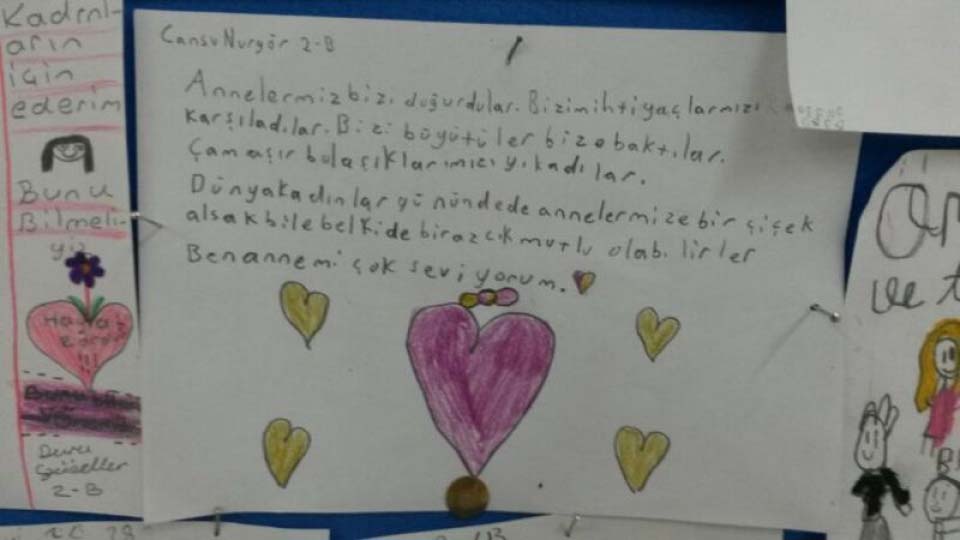 Kadınl-
arın
için
ederim
Bunu
Bilmeli-
yiz
Duru
2-B
Cansu Nurgör 2-B
Annelermiz bizi doğurdular. Bizim ihtiyaçlarmızı
karşıladılar. Bizi büyütüler bize baktılar.
Çamaşır bulaşıklarımızı yıkadılar.
Dünya kadınlar gü nünde de annelermize bir çiçek
alsak bile belki de birazcık mutlu olabilirler
Ben annemi çok seviyorum.
ve